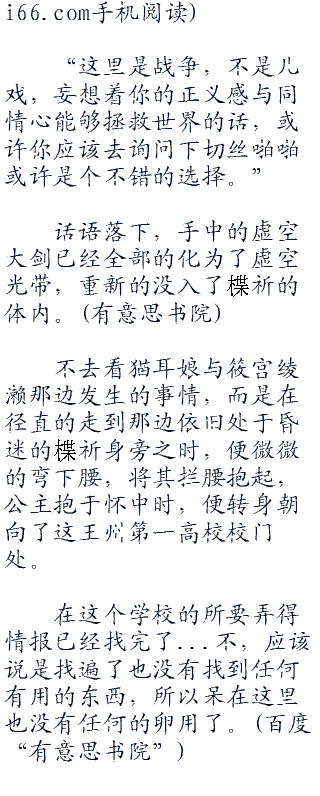 i66.com手机阅读)
“这里是战争，不是儿
戏，妄想着你的正义感与同
情心能够拯救世界的话，或
许你应该去询问下切丝啪啪
或许是个不错的选择。”
话语落下，手中的虚空
大剑已经全部的化为了虚空
光带，重新的没入了楪祈的
体内。(有意思书院)
不去看猫耳娘与筱宫绫
濑那边发生的事情，而是在
径直的走到那边依旧处于昏
迷的楪祈身旁之时，便微微
的弯下腰，将其拦腰抱起，
公主抱于怀中时，便转身朝
向了这王州第一高校校门
处。
在这个学校的所要弄得
情报已经找完了...不，应该
说是找遍了也没有找到任何
有用的东西，所以呆在这里
也没有任何的卵用了。(百度
“有意思书院”)